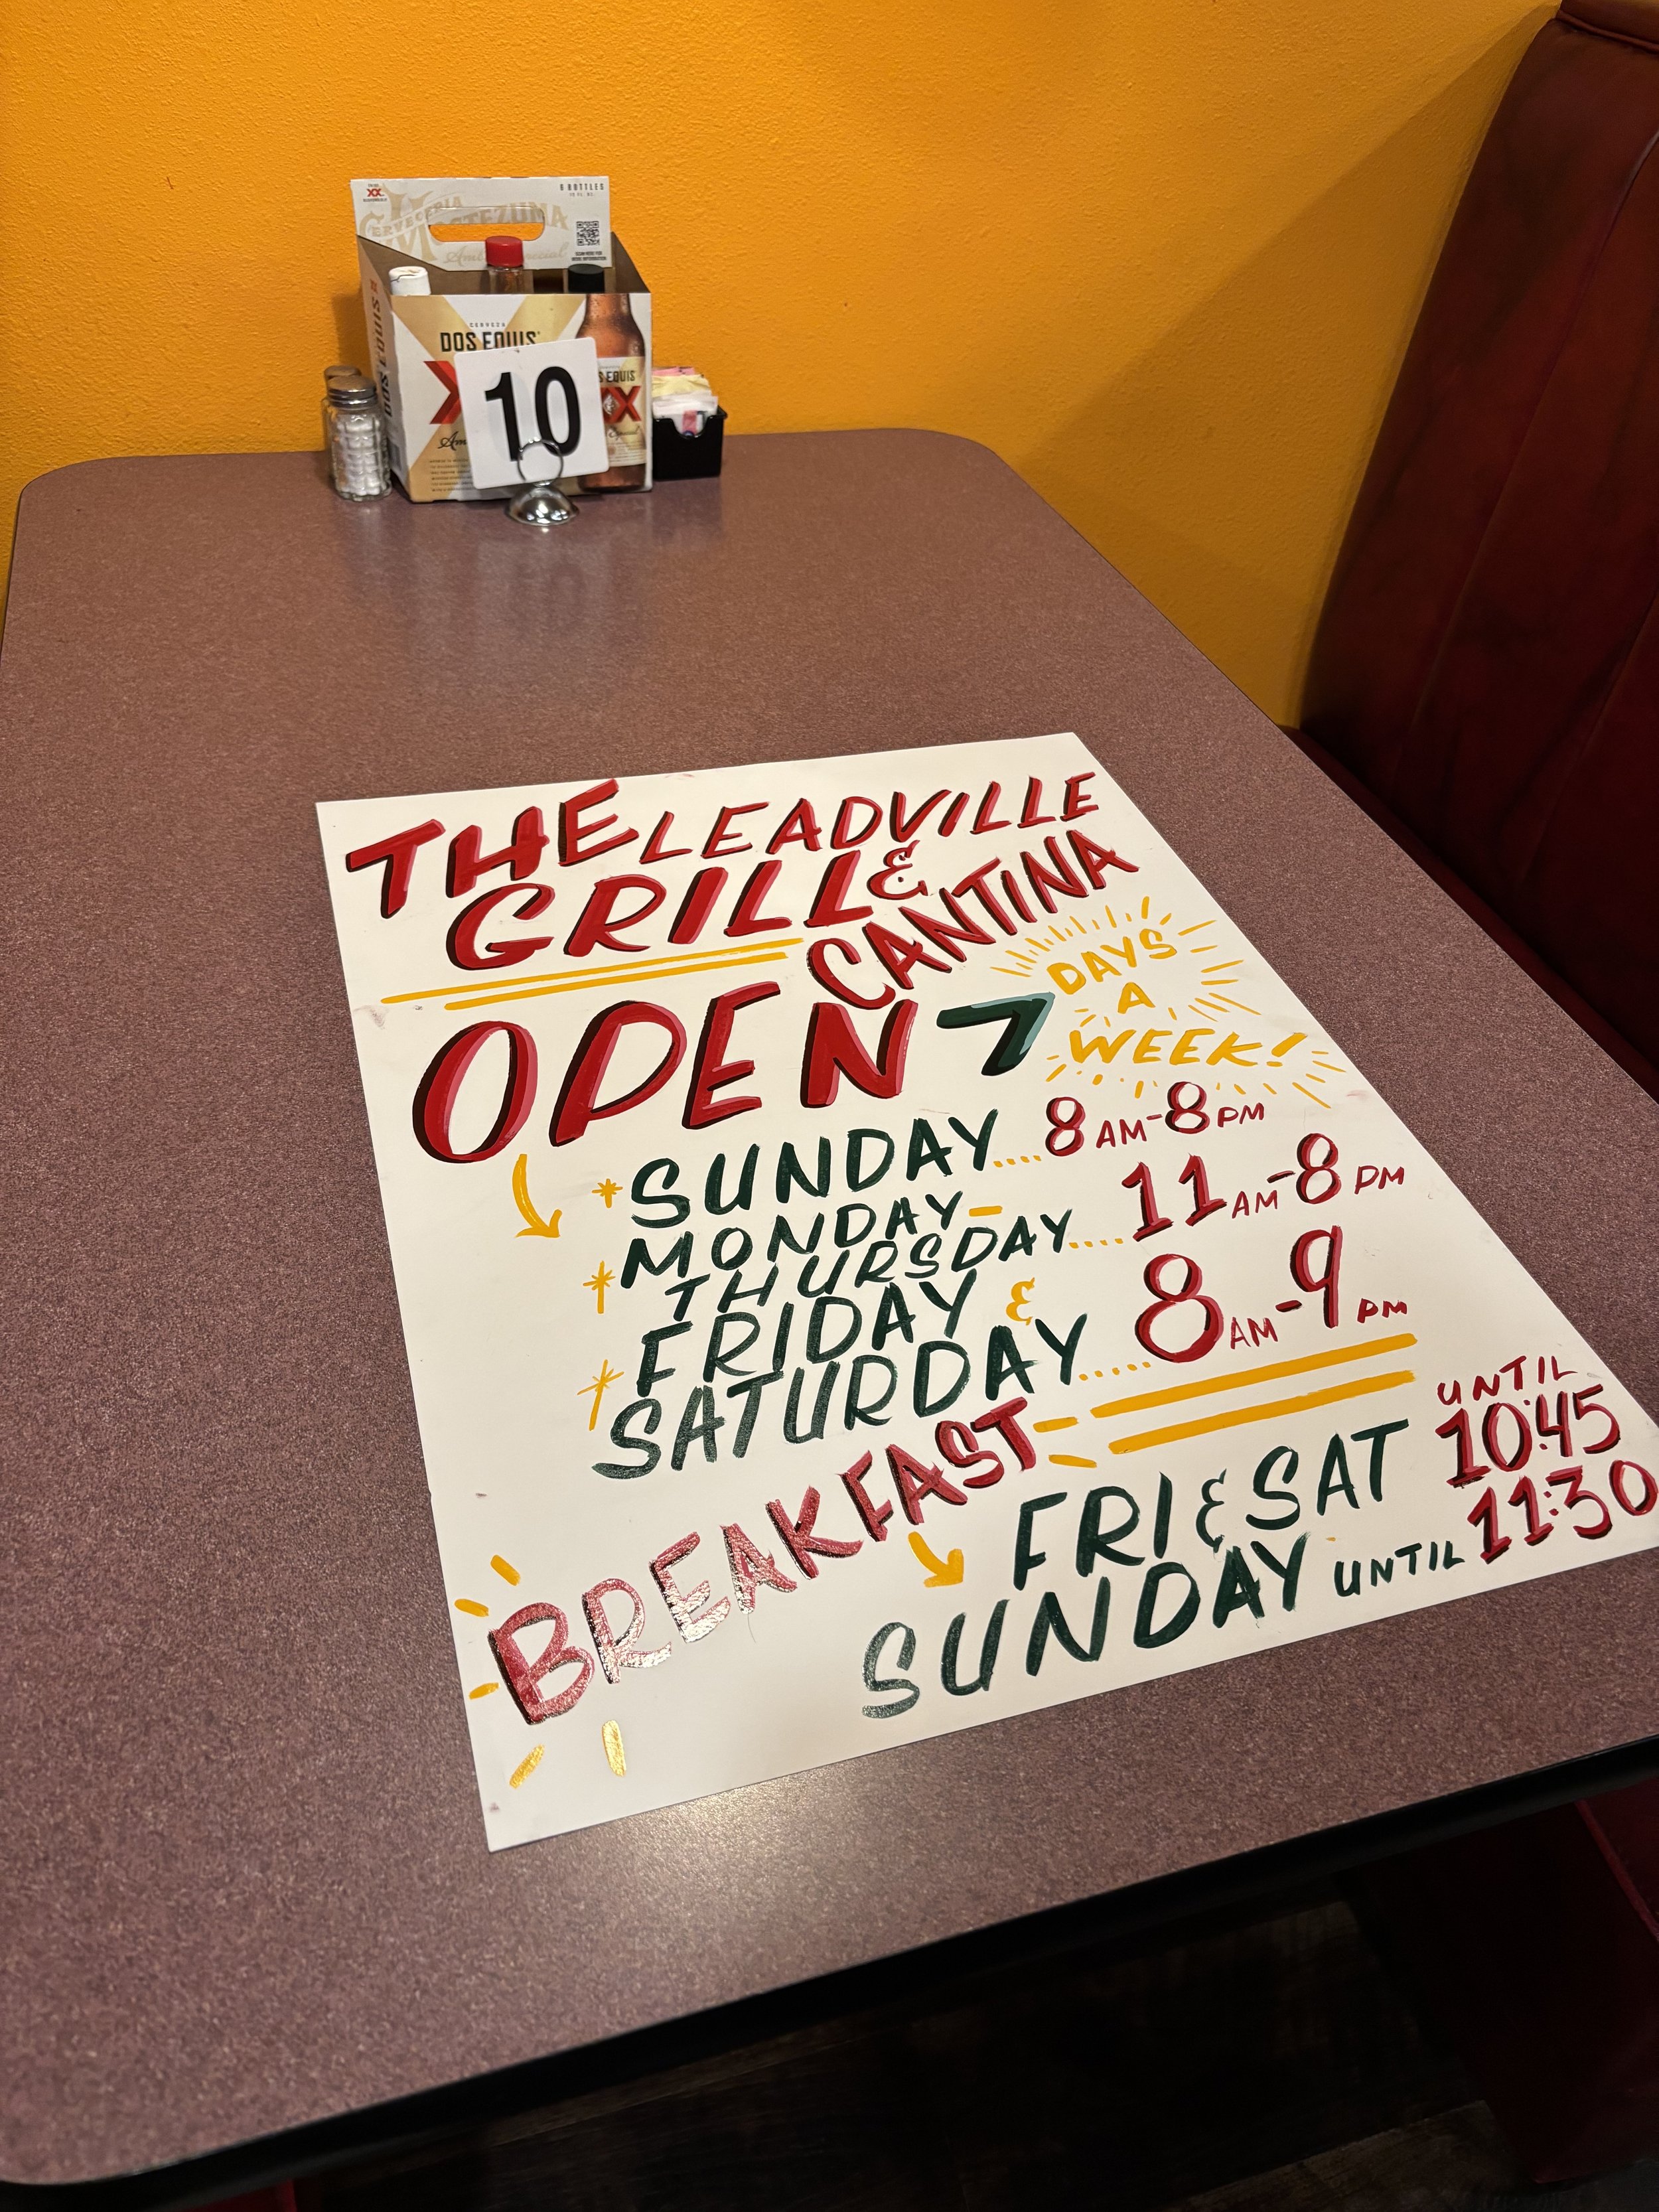 XX
6 BOTTLES
CERVECERIA
MOCTEZUMA
CERVEZA
DOS EQUIS
DOS EQUIS
XX
10
THE LEADVILLE
GRILL &
CANTINA
OPEN 7 DAYS
A
WEEK!
SUNDAY....8AM-8PM
MONDAY-
THURSDAY....11AM-8PM
FRIDAY &
SATURDAY.....8AM-9PM
BREAKFAST
FRI & SAT UNTIL 10:45
SUNDAY UNTIL 11:30